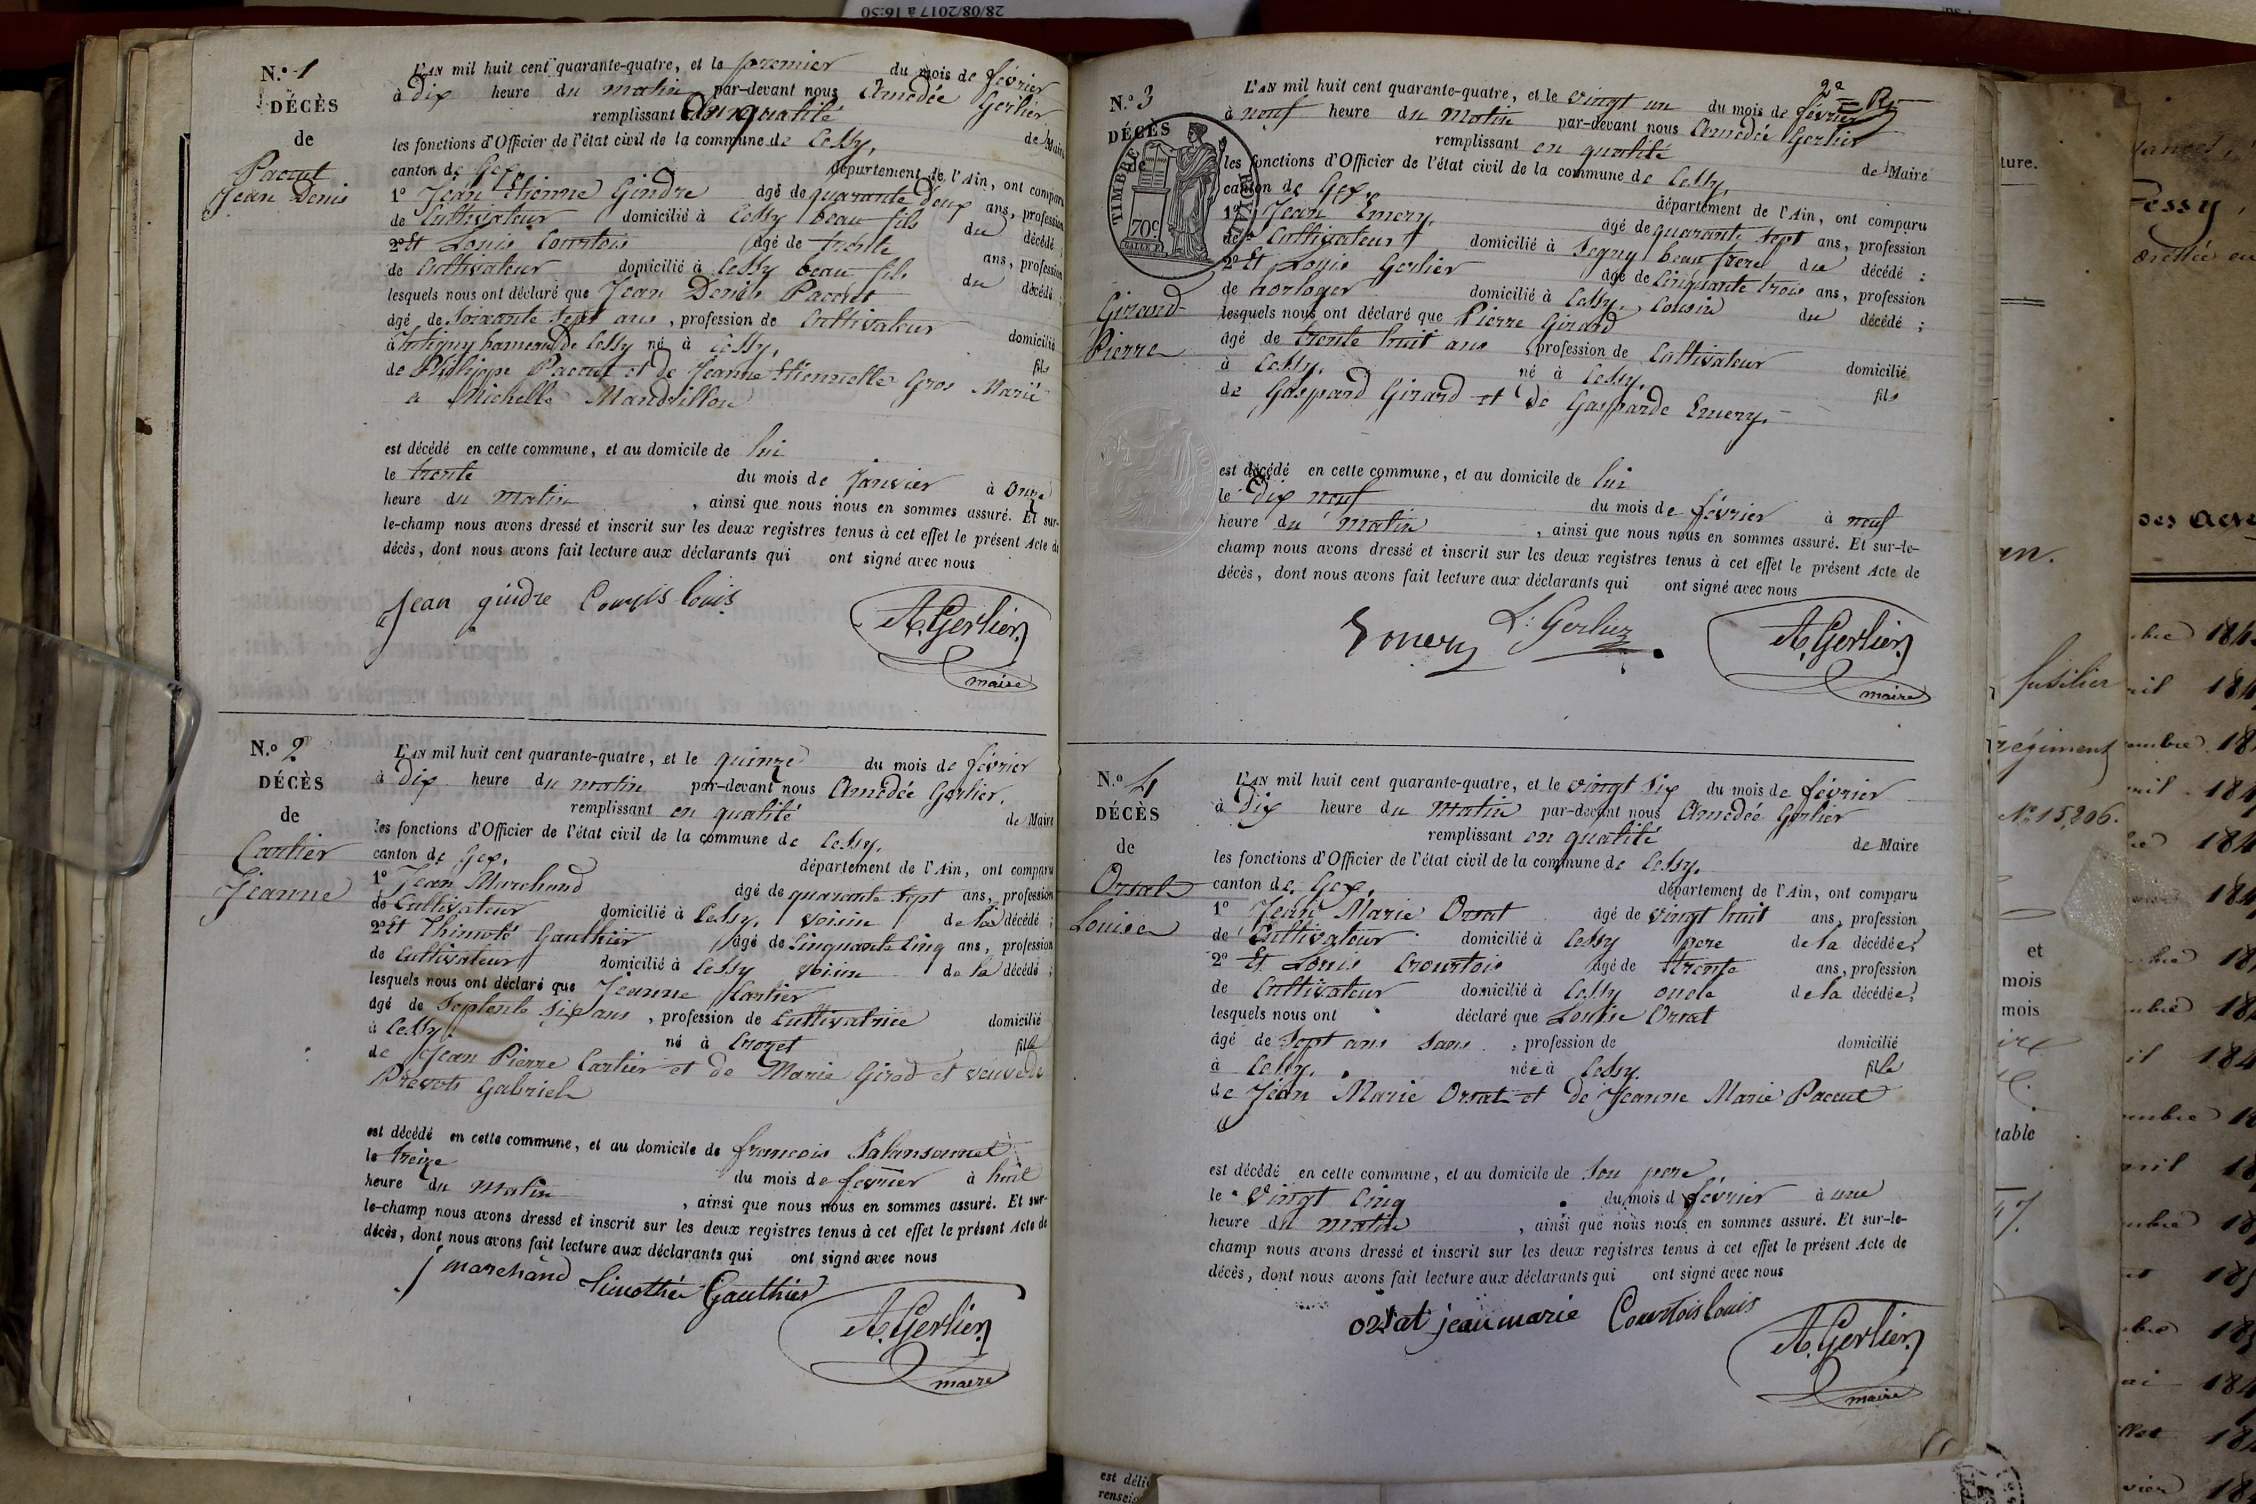 28/08/2017 à 16:50
N.o 1
DÉCÈS
de
Pacout
Jean Denis
L'AN mil huit cent quarante-quatre, et le premier du mois de février
à dix heure du matin par-devant nous Amédée Gerlier
remplissant en qualité de Maire
les fonctions d'Officier de l'état civil de la commune de Cessy,
canton de Gex, département de l'Ain, ont comparu
1o Jean Etienne Gindre âgé de quarante deux ans, profession
de Cultivateur domicilié à Cessy beau fils du décédé ;
2o Et Louis Courtois âgé de trente ans, profession
de Cultivateur domicilié à Cessy beau fils du décédé ;
lesquels nous ont déclaré que Jean Denis Pacout
âgé de Soixante Sept ans, profession de Cultivateur domicilié
à hameau de Cessy né à Cessy, fils
de Philippe Pacout et de Jeanne Etiennette Gros Marié
a Michelle Mandrillon
est décédé en cette commune, et au domicile de lui
le trente du mois de janvier à Onze
heure du matin, ainsi que nous nous en sommes assuré. Et sur-
le-champ nous avons dressé et inscrit sur les deux registres tenus à cet effet le présent Acte de
décès, dont nous avons fait lecture aux déclarants qui ont signé avec nous
Jean gindre Courtois louis
A. Gerlier
maire
N.o 2
DÉCÈS
de
Cartier
Jeanne
L'AN mil huit cent quarante-quatre, et le quinze du mois de février
à dix heure du matin par-devant nous Amédée Gerlier,
remplissant en qualité de Maire
les fonctions d'Officier de l'état civil de la commune de Cessy,
canton de Gex, département de l'Ain, ont comparu
1o Jean Marchand âgé de quarante sept ans, profession
de Cultivateur domicilié à Cessy, voisin de la décédé ;
2o Et Thimoté Gauthier âgé de Cinquante Cinq ans, profession
de Cultivateur domicilié à Cessy voisin de la décédé ;
lesquels nous ont déclaré que Jeanne Cartier
âgé de Septente Six ans, profession de Cultivatrice domicilié
à Cessy né à Crozet fille
de Jean Pierre Cartier et de Marie Girod et veuve de
Prevots Gabriel
est décédé en cette commune, et au domicile de francois Palansonnet
le treize du mois de fevrier à huit
heure du Matin, ainsi que nous nous en sommes assuré. Et sur-
le-champ nous avons dressé et inscrit sur les deux registres tenus à cet effet le présent Acte de
décès, dont nous avons fait lecture aux déclarants qui ont signé avec nous
j marchand timothé Gauthier
A. Gerlier
maire
2e
N.o 3
DÉCÈS
de
TIMBRE ROYAL
70c
Girard
Pierre
L'AN mil huit cent quarante-quatre, et le vingt un du mois de février
à neuf heure du Matin par-devant nous Amédée Gerlier
remplissant en qualité de Maire
les fonctions d'Officier de l'état civil de la commune de Cessy,
canton de Gex, département de l'Ain, ont comparu
1o Jean Emery âgé de quarante sept ans, profession
de Cultivateur domicilié à Segny beau frere du décédé :
2o Et Louis Gerlier âgé de Cinquante trois ans, profession
de horloger domicilié à Cessy, Cousin du décédé ;
lesquels nous ont déclaré que Pierre Girard
âgé de trente huit ans, profession de Cultivateur domicilié
à Cessy, né à Cessy, fils
de Gaspard Girard et de Gasparde Emery,
est décédé en cette commune, et au domicile de lui
le dix neuf du mois de février à neuf
heure du matin, ainsi que nous nous en sommes assuré. Et sur-le-
champ nous avons dressé et inscrit sur les deux registres tenus à cet effet le présent Acte de
décès, dont nous avons fait lecture aux déclarants qui ont signé avec nous
Emery L. Gerlier
A. Gerlier
maire
N.o 4
DÉCÈS
de
Orsat
Louise
L'AN mil huit cent quarante-quatre, et le vingt Six du mois de février
à Dix heure du Matin par-devant nous Amédée Gerlier
remplissant en qualité de Maire
les fonctions d'Officier de l'état civil de la commune de Cessy,
canton de Gex, département de l'Ain, ont comparu
1o Jean Marie Orsat âgé de vingt huit ans, profession
de Cultivateur domicilié à Cessy pere de la décédée ;
2o Et Louis Crourtois âgé de trente ans, profession
de Cultivateur domicilié à Cessy oncle de la décédée ;
lesquels nous ont déclaré que Louise Orsat
âgé de Sept ans Sans, profession de domicilié
à Cessy, née à Cessy. fille
de Jean Marie Orsat et de Jeanne Marie Pacout
est décédé en cette commune, et au domicile de Son pere
le Vingt Cinq du mois de février à une
heure du matin, ainsi que nous nous en sommes assuré. Et sur-le-
champ nous avons dressé et inscrit sur les deux registres tenus à cet effet le présent Acte de
décès, dont nous avons fait lecture aux déclarants qui ont signé avec nous
orsat jean marie Courtois louis
A. Gerlier
maire
ture.
fusilier
régiment
No 15,206.
et
mois
mois
table
Fessy
des Actes
est déli
renseig